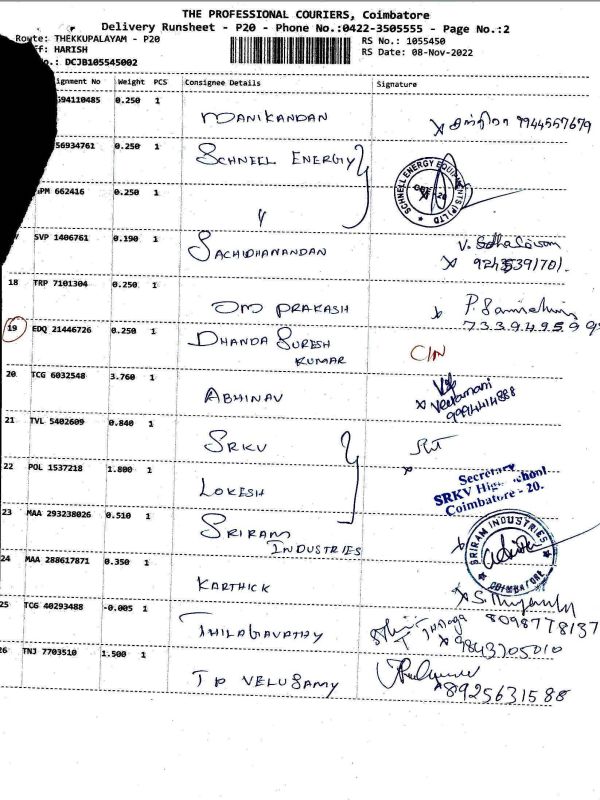 THE PROFESSIONAL COURIERS, Coimbatore
Delivery Runsheet - P20 - Phone No.:0422-3505555 - Page No.:2
Route: THEKKUPALAYAM - P20
RS No.: 1055450
HARISH
RS Date: 08-Nov-2022
DCJB105545002
ignment No Weight PCS Consignee Details Signature
94110485 0.250 1 MANIKANDAN 9944557679
56934761 0.250 1 SCHNEEL ENERGY
SCHNELL ENERGY EQUIPMENTS (P) LTD
PM 662416 0.250 1 "
SVP 1406761 0.190 1 SACHIDHANANDAN
18 TRP 7101304 0.250 1 OM PRAKASH
19 EDQ 21446726 0.250 1 DHANDA SURESH
KUMAR
20 TCG 6032548 3.760 1 ABHINAV
Veeramani
21 TVL 5402609 0.840 1 SRKV
22 POL 1537218 1.800 1 LOKESH
Secretary
SRKV High School
Coimbatore - 20.
23 MAA 293238026 0.510 1 SRIRAM
INDUSTRIES
SRIRAM INDUSTRIES
COIMBATORE
24 MAA 288617871 0.350 1 KARTHICK
8098778137
25 TCG 40293488 -0.005 1 THILAGAVATHY
9843205010
26 TNJ 7703510 1.500 1 T P VELUSAMY
8925631588